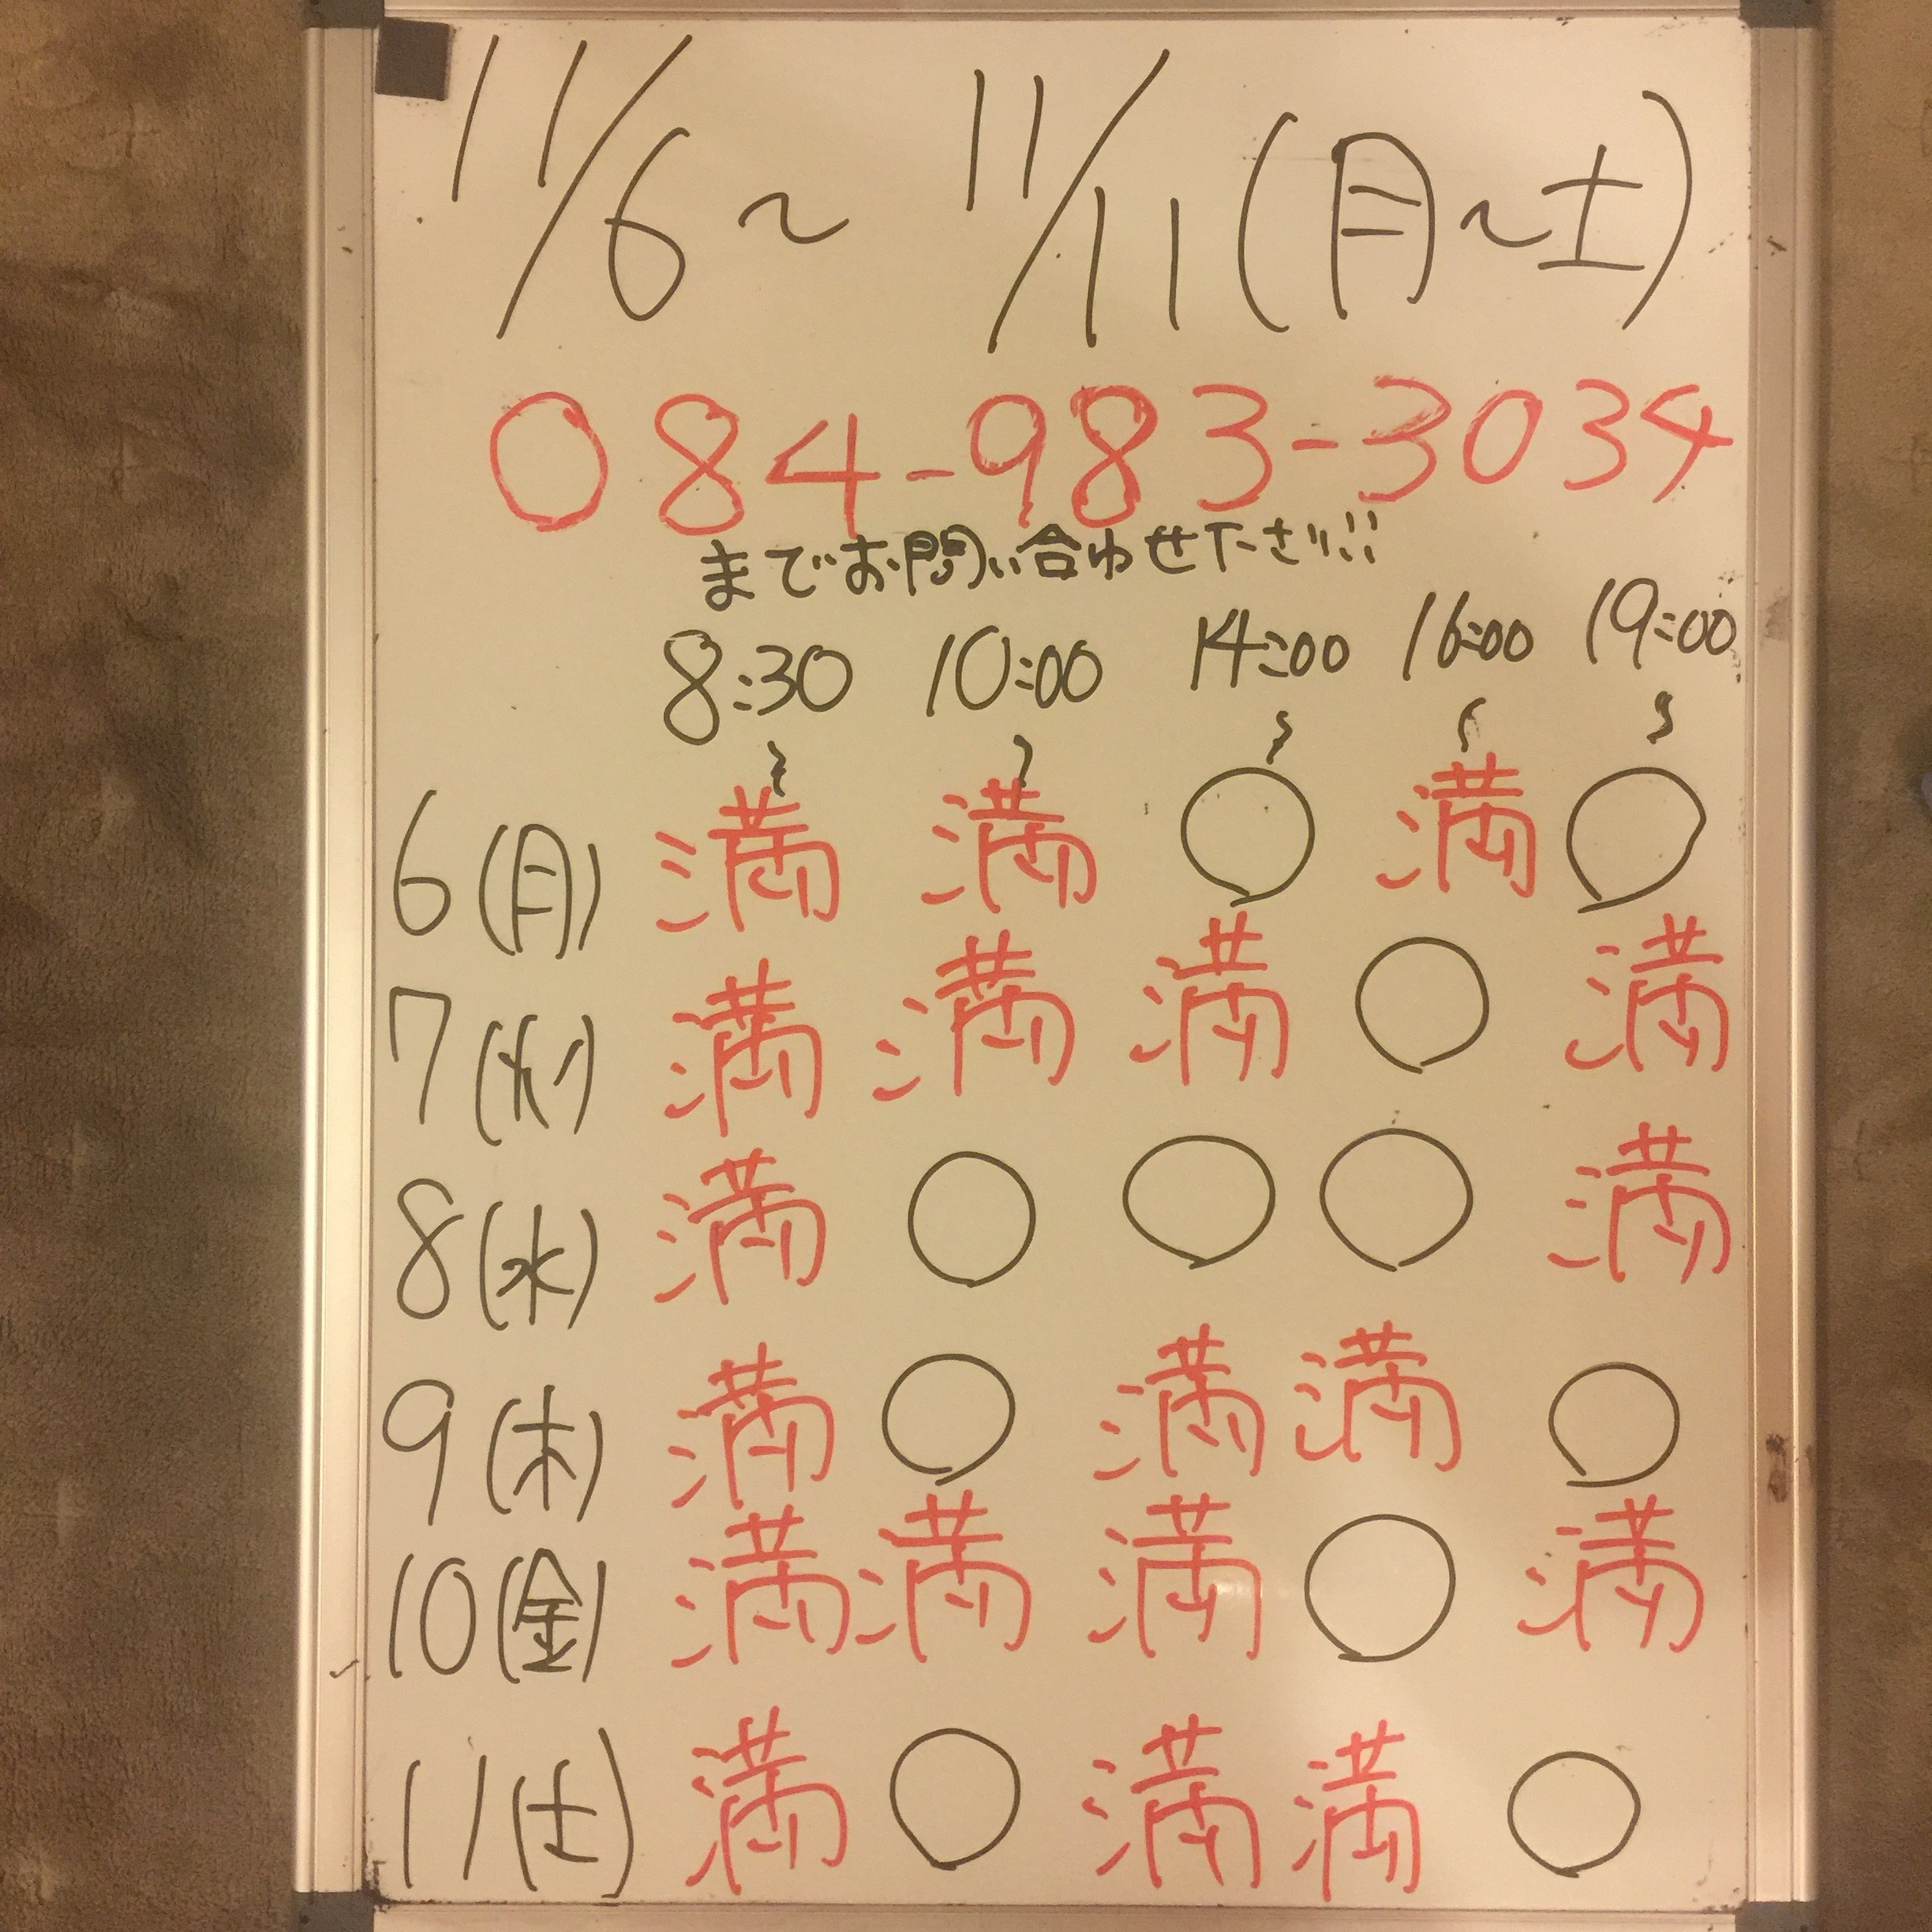 11/6～11/11(月～土)
084-983-3034
までお問い合わせ下さい!!
8:30 10:00 14:00 16:00 19:00
～ ～ ～ ～ ～
6(月) 満 満 ○ 満 ○
7(火) 満 満 満 ○ 満
8(水) 満 ○ ○ ○ 満
9(木) 満 ○ 満 満 ○
10(金) 満 満 満 ○ 満
11(土) 満 ○ 満 満 ○